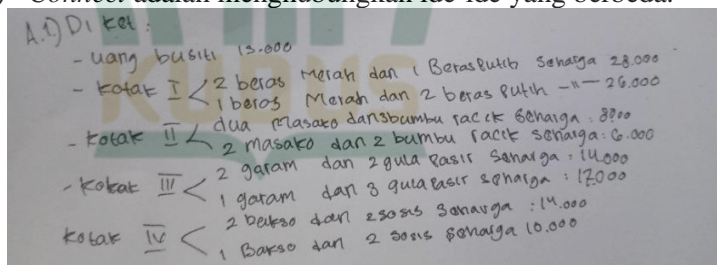 Connect adalah menghubungkan ide-ide yang berbeda.
A.1) Diket :
- uang busiti 15.000
- kotak I < 2 beras merah dan 1 Beras Putih Seharga 28.000
1 beras Merah dan 2 beras putih -"- 26.000
- kotak II < dua Masako dan 3 bumbu racik seharga : 8900
2 masako dan 2 bumbu racik seharga : 6.000
- kotak III < 2 garam dan 2 gula pasir seharga : 14.000
1 garam dan 3 gula pasir seharga : 17000
kotak IV < 2 bakso dan 2 sosis seharga : 14.000
1 Bakso dan 2 sosis seharga 10.000
KUDUS